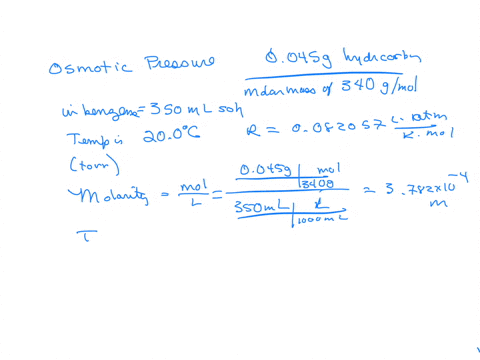 Osmotic Pressure
0.045g hydrocarbon
molar mass of 340 g/mol
in benzene = 350 mL soln
Temp is 20.0°C
R = 0.082057 L·atm / K·mol
(torr)
Molarity = mol / L = 0.045g | mol / 340g / 350mL | L / 1000mL = 3.782x10⁻⁴ m
T